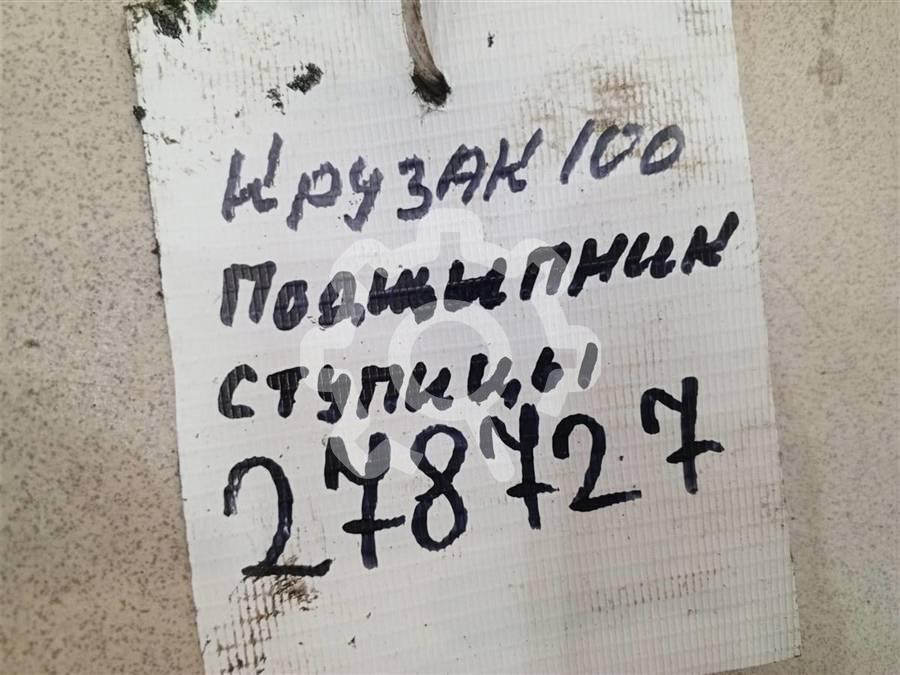 Крузак 100
Подшипник
ступицы
278727